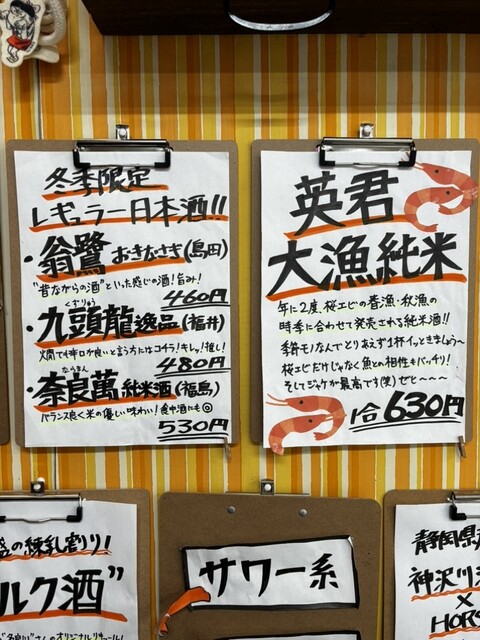 冬季限定
レギュラー日本酒!!
・翁鷺 おきなさぎ(島田)
"昔ながらの酒"といった感じの酒!旨み!
460円
くずりゅう
・九頭龍逸品(福井)
火間で辛口が良いと言う方にはコチラ!キレ!推し!
480円
ならまん
・奈良萬 純米酒(福島)
バランス良く米の優しい味わい!食中酒にも◎
530円
英君
大漁純米
年に2度、桜エビの春漁・秋漁の
時季に合わせて発売される純米酒!!
季節モノなんでとりあえず1杯イッときましょう〜
桜エビだけじゃなく魚との相性もバッチリ!
そしてジャケが最高です(笑)ぜひ〜〜〜〜
1合 630円
の練乳割り!
ルク酒"
さんのオリジナルリキュール!
サワー系
静岡県
神沢川
×
HOR